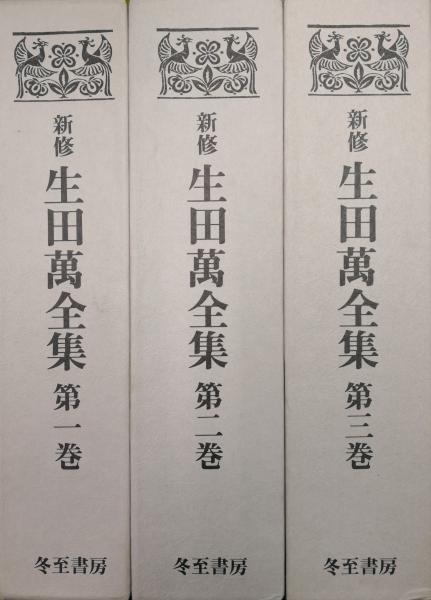 新修 生田萬全集 第一巻
冬至書房
新修 生田萬全集 第二巻
冬至書房
新修 生田萬全集 第三巻
冬至書房